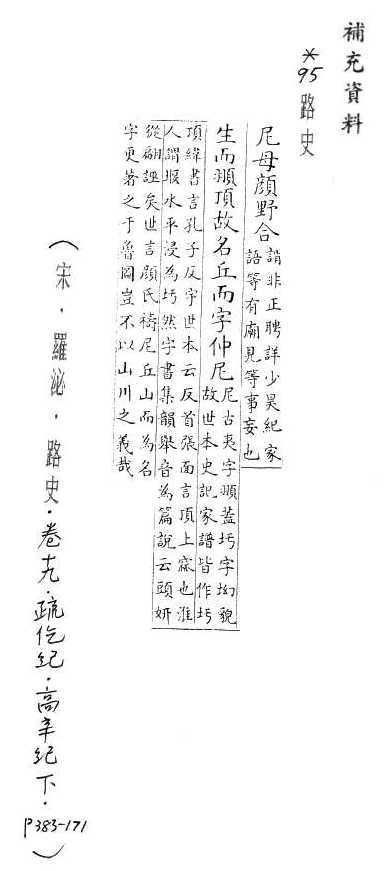 補充資料
*95 路史
尼母顔野合
謂非正聘詳少昊紀家
語等有廟見等事妄也
生而頨頂故名丘而字仲尼
尼古夷字頨蓋圬字坳貌
故世本史記家譜皆作圬
頂緯書言孔子反宇世本云反首張面言頂上窳也淮
人謂堰水平浸為圬然字書集韻舉音為篇說云頭妍
從翩誣矣世言顔氏禱尼丘山而為名
字更著之于魯國豈不以山川之義哉
（宋．羅泌．路史．卷十九．疏仡紀．高辛紀下．P383-171）